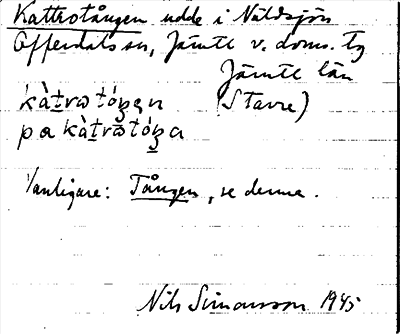 Kattrotången udde i Näldsjön
Offerdals sn, Jämtl v. doms. tg
Jämtl län
kàtrωtóʒen (Stavre)
pa kàtrωtóʒa
Vanligare: Tången, se denna.
Nils Simonsson 1945